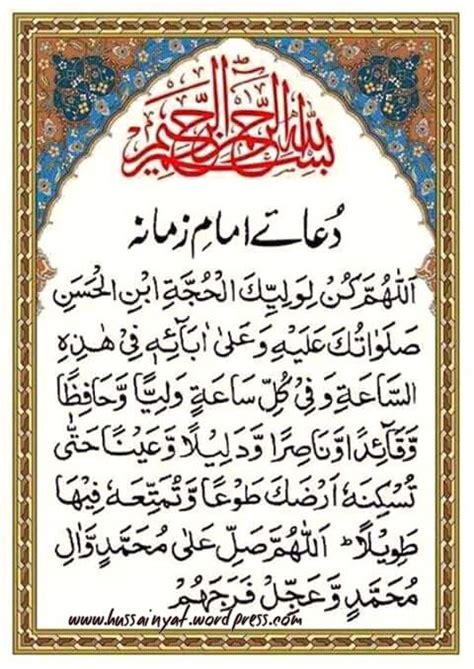 بِسْمِ اللهِ الرَّحْمٰنِ الرَّحِيْمِ
دُعائے امامِ زمانہ
اَللّٰهُمَّ كُنْ لِوَلِيِّكَ الْحُجَّةِ ابْنِ الْحَسَنِ
صَلَوَاتُكَ عَلَيْهِ وَعَلٰى اٰبَآئِهٖ فِيْ هٰذِهِ
السَّاعَةِ وَفِيْ كُلِّ سَاعَةٍ وَلِيًّا وَّحَافِظًا
وَّقَآئِدًا وَّنَاصِرًا وَّدَلِيْلًا وَّعَيْنًا حَتّٰى
تُسْكِنَهٗ اَرْضَكَ طَوْعًا وَّتُمَتِّعَهٗ فِيْهَا
طَوِيْلًا اَللّٰهُمَّ صَلِّ عَلٰى مُحَمَّدٍ وَّاٰلِ
مُحَمَّدٍ وَّعَجِّلْ فَرَجَهُمْ
www.hussainyat.wordpress.com